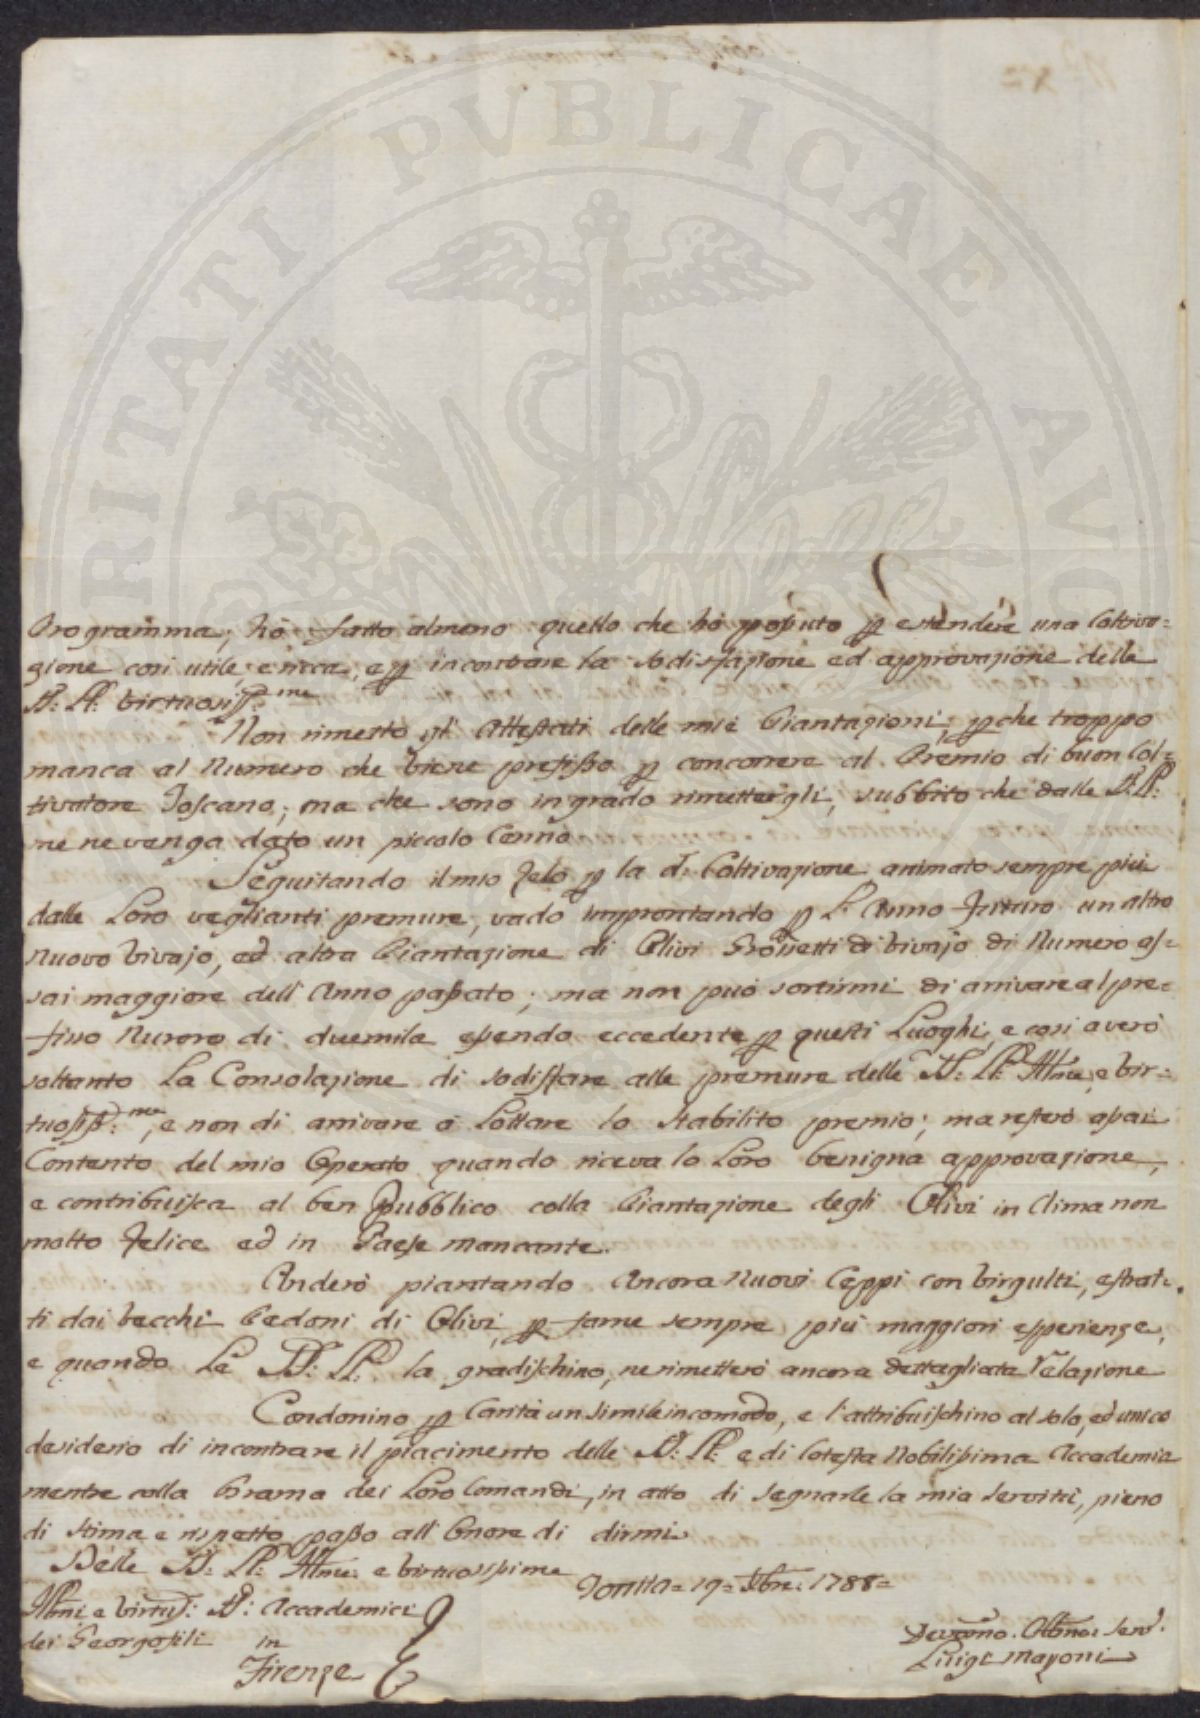 PROSPERITATI PUBLICAE AUGENDAE
Programma; hò fatto almeno quello che hò potuto p estendere una Coltiva=
zione cosi utile, e ricca, e p incontrare la sodisfazione ed approvazione delle
LL: virtuosiss:me
Non rimetto gl' Attestati delle mie Piantazioni, pche troppo
manca al Numero che viene prefisso p concorrere al Premio di buon Col=
tivatore Toscano; ma che sono in grado rimettergli, subbito che dalle LL:
me ne venga dato un piccolo Cenno
Seguitando il mio Zelo p la d: Coltivazione animato sempre più
dalle Loro veglianti premure, vado improntando p L' Anno futuro un altro
nuovo Vivajo, ed altra Piantazione di Olivi Grossetti di Vivajo di Numero as=
sai maggiore dell' Anno passato; ma non può sortirmi di arrivare al pre=
fisso Numero di duemila essendo eccedente p questi Luoghi, e cosi averò
soltanto La Consolazione di sodisfare alle premure delle LL: Illme, e Vir=
tuosiss:me, e non di arrivare a Lottare lo Stabilito premio; ma resterò assai
Contento del mio Operato quando riceva lo Loro benigna approvazione,
e contribuisca al ben Pubblico colla Piantazione degli Olivi in Clima non
molto Felice ed in Paese mancante.
Anderò piantando Ancora Nuovi Ceppi con Virgulti, estrat=
ti dai vecchi Pedoni di Olivi, p farne sempre più maggiori esperienze,
e quando Le LL: la gradischino, ne rimetterò ancora dettagliata Relazione
Condonino p Carità un simile incomodo, e l'attribuischino al solo, ed unico
desiderio di incontrare il piacimento delle LL: e di Cotesta Nobilissima Accademia
mentre colla Brama dei Loro Comandi, in atto di segnarle la mia servitù, pieno
di stima e rispetto passo all' Onore di dirmi
Delle LL: Illme: e Virtuosissime
19= 1788=
Illmi e Virtus: Accademici
dei Georgofili in
Firenze
Devmo. Obbmo: Serv:
Luigi